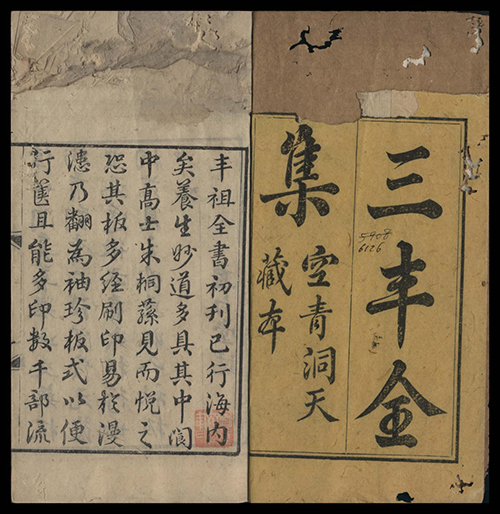 三丰全
集
空青洞天
藏本
5408
6126
丰祖全書初刊已行海內
矣養生妙道多具其中閬
中高士朱桐蓀見而悦之
恐其板多經刷印易於漫
漶乃翻為袖珍板式以便
行篋且能多印数千部流